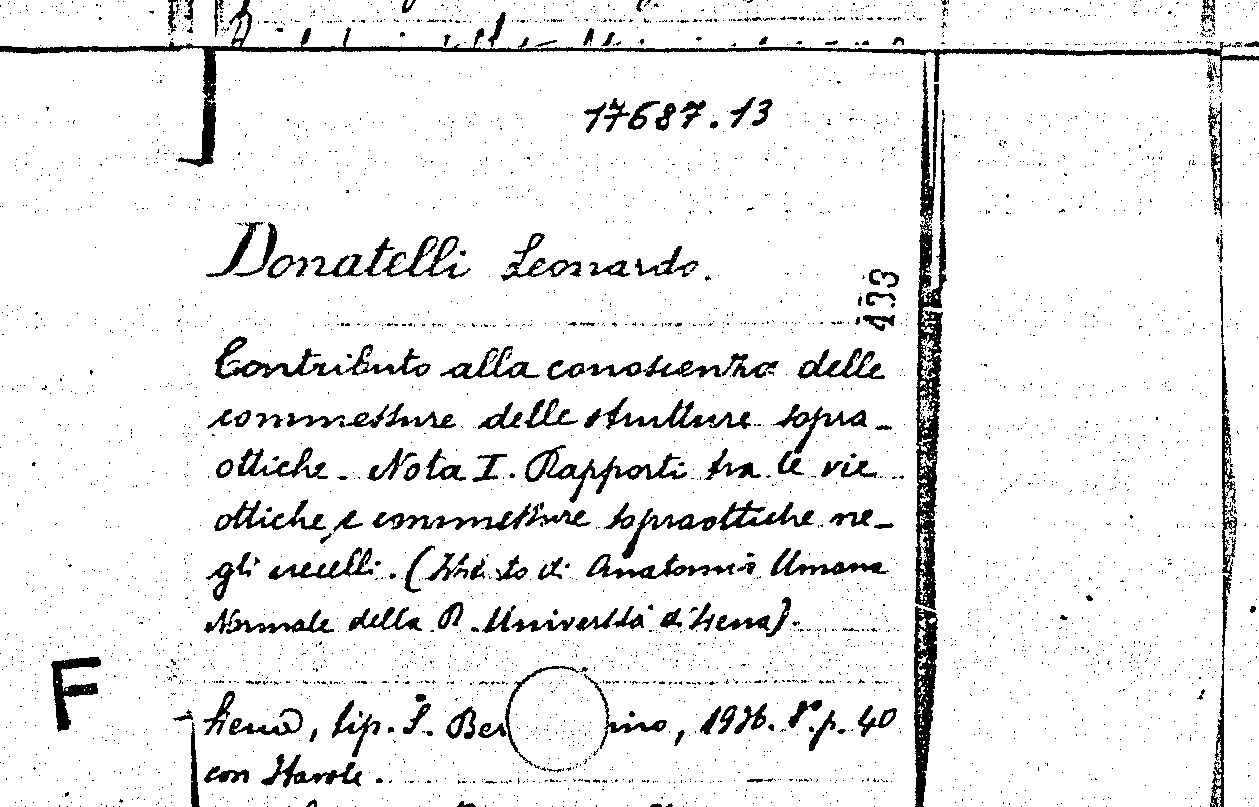 17687.13
Donatelli Leonardo.
433
Contributo alla conoscienza delle
commessure delle strutture sopra-
ottiche. Nota I. Rapporti tra le vie
ottiche e commessure sopraottiche ne-
gli uccelli. (Istituto di Anatomia Umana
Normale della R. Università di Siena).
F
Siena, tip. S. Ber ino, 1936. 8° p. 40
con tavole.